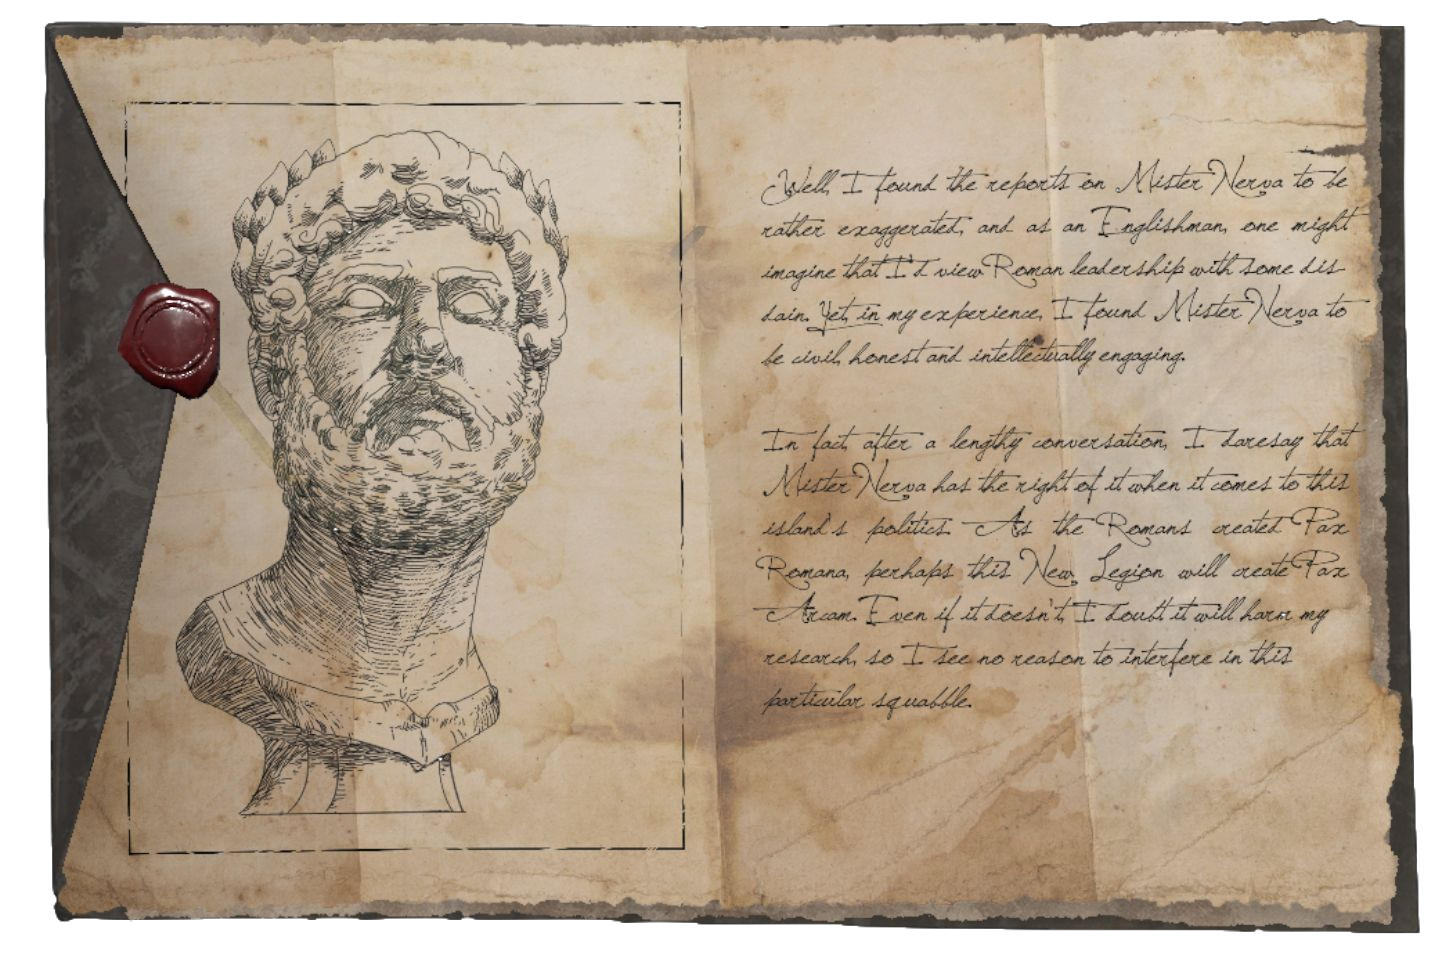 Well, I found the reports on Mister Nerva to be
rather exaggerated, and as an Englishman, one might
imagine that I'd view Roman leadership with some dis-
dain. Yet in my experience, I found Mister Nerva to
be civil, honest and intellectually engaging.
In fact, after a lengthy conversation, I daresay that
Mister Nerva has the right of it when it comes to this
island's politics. As the Romans created Pax
Romana, perhaps this New Legion will create Pax
Arcam. Even if it doesn't, I doubt it will harm my
research, so I see no reason to interfere in this
particular squabble.